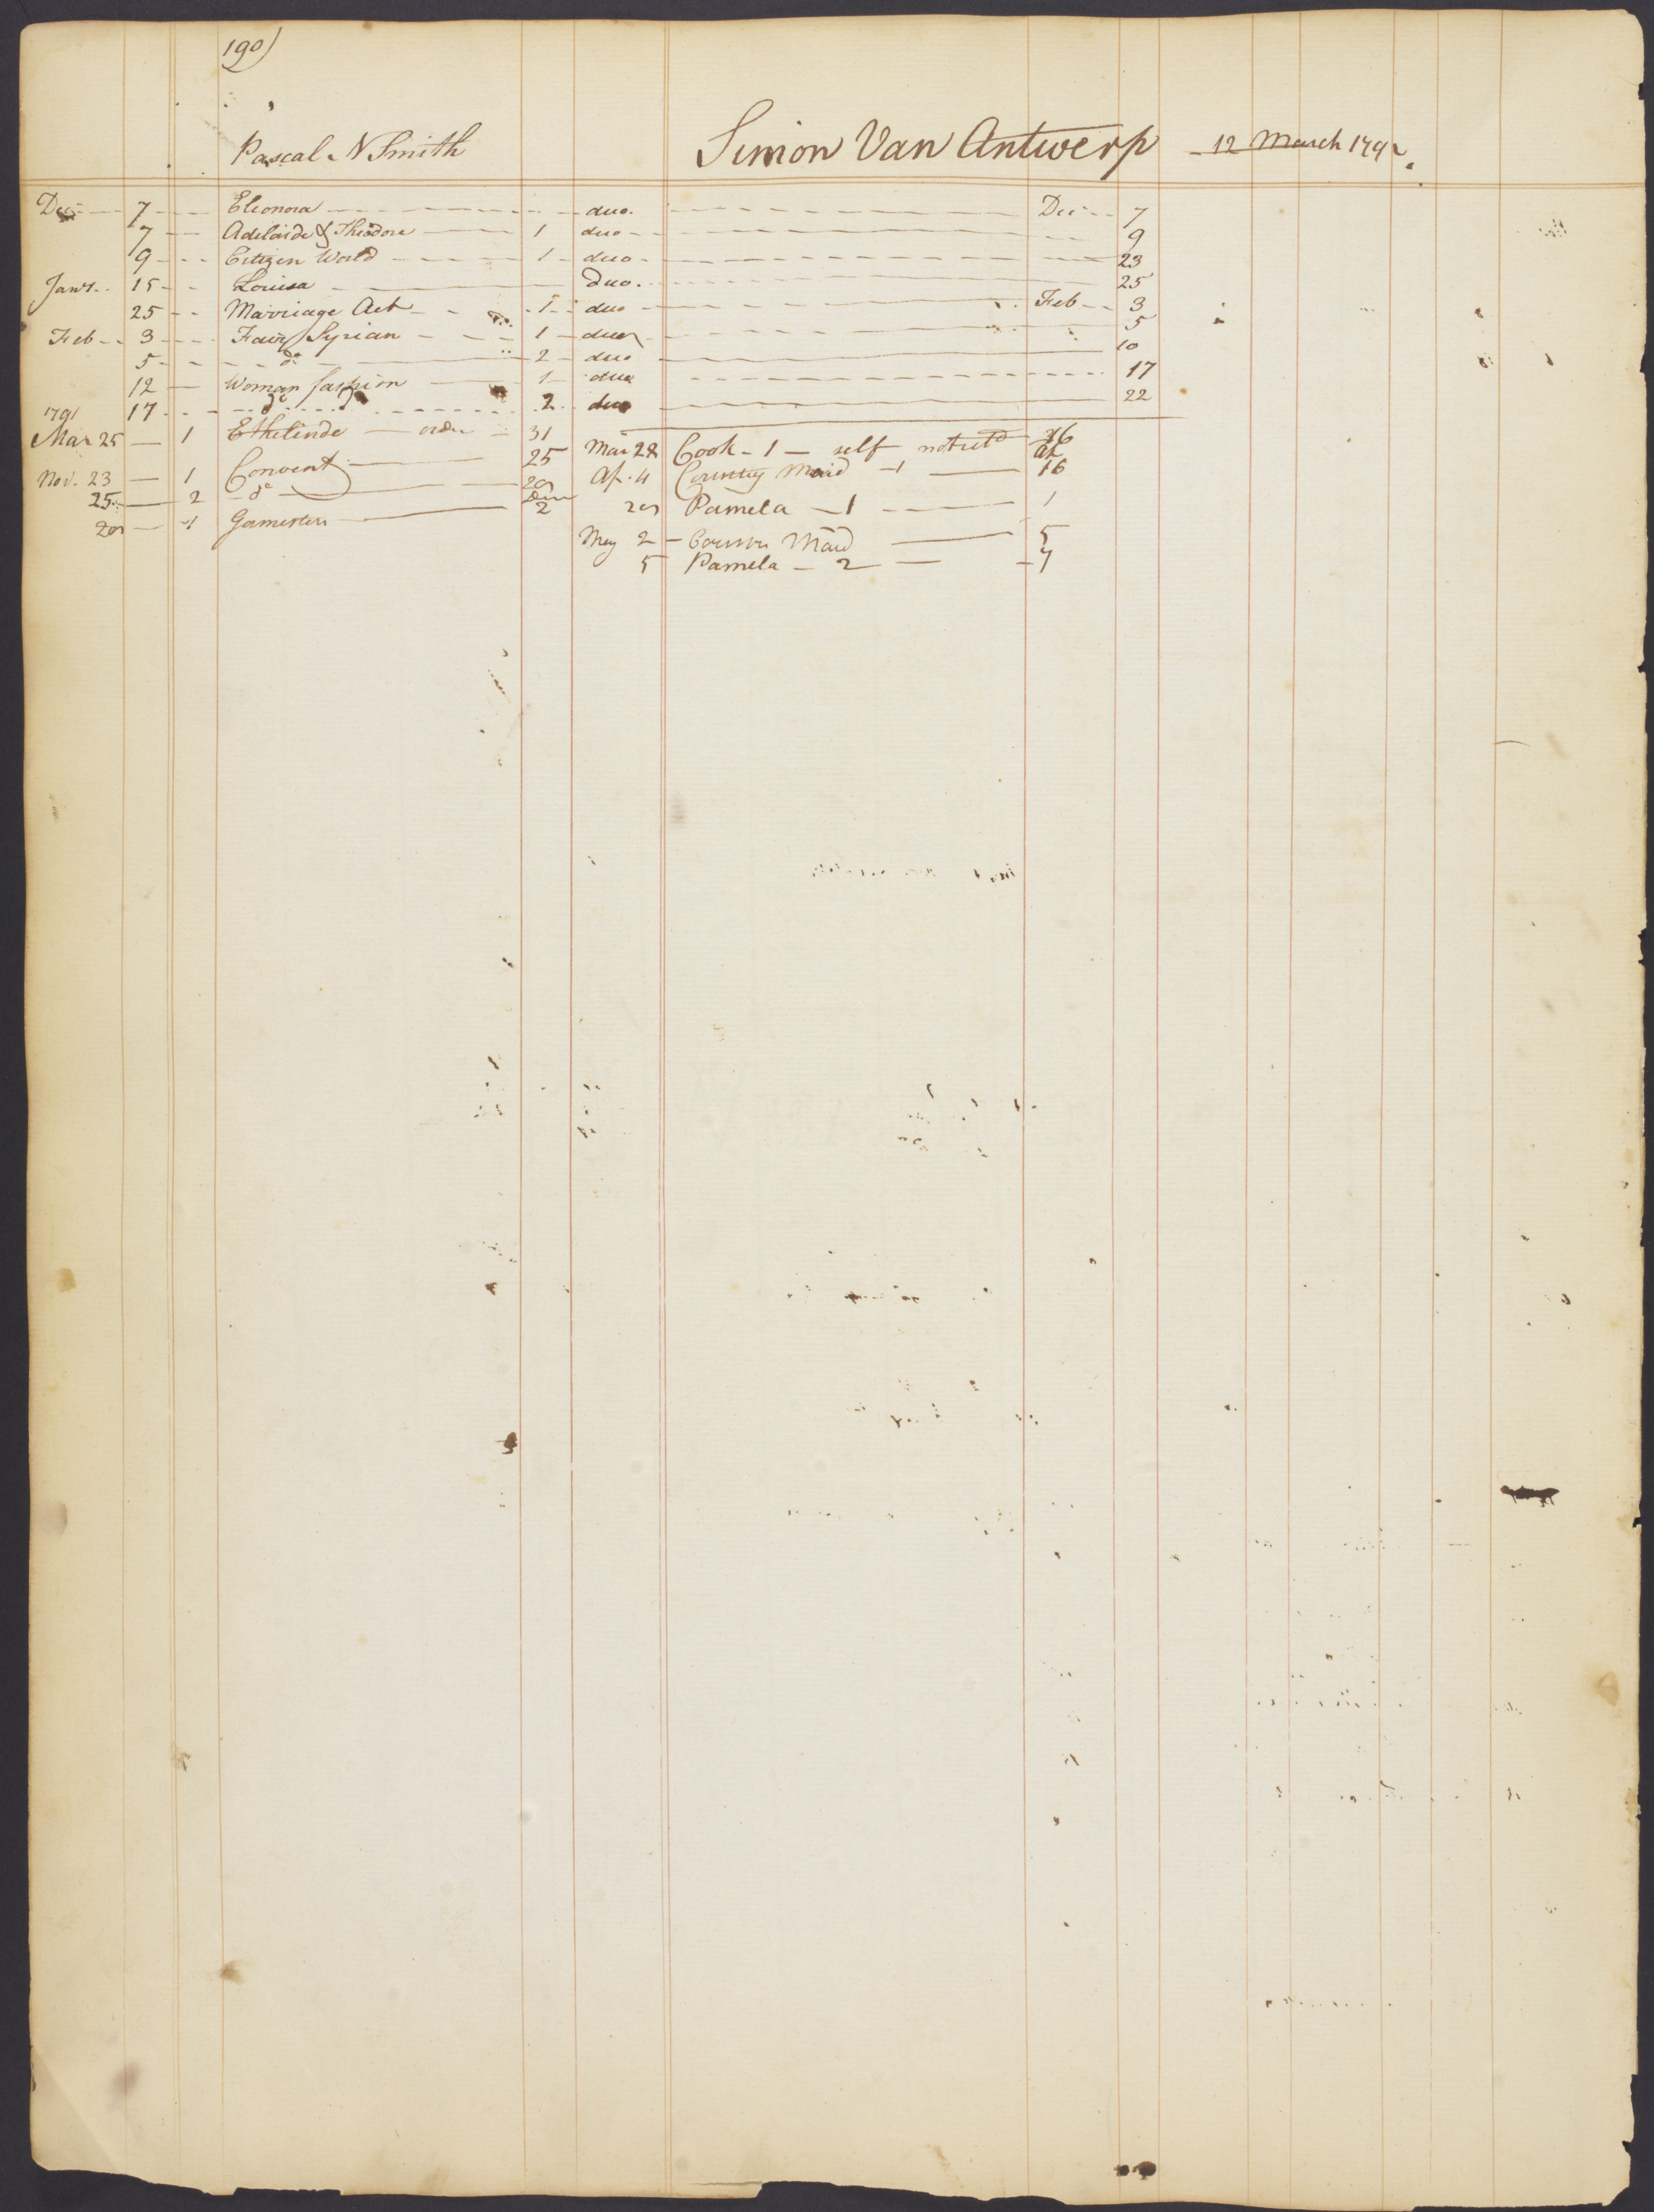 190)
Pascal N Smith
Simon Van Antwerp - 12 March 1792
Dec 7 Eleonora duo. Dec 7
7 Adelaide & Theodore 1 duo 9
9 Citizen World 1 duo 23
Jany. 15 Louisa duo. 25
25 Marriage Act 1 duo Feb 3
Feb 3 Fair Syrian 1 duo 5
5 do 2 duo 10
12 Woman fashion 1 duo 17
1791 17 do 2 duo 22
Mar 25 1 Ethelinde 31
Nov. 23 1 Convent 25
25 2 do
1 Gamesters 2
Mar 28 Cook - 1 - self 16
Ap. 4 Country Maid - 1 16
Pamela - 1 1
May 2 - Maid 5
5 Pamela - 2 - 7